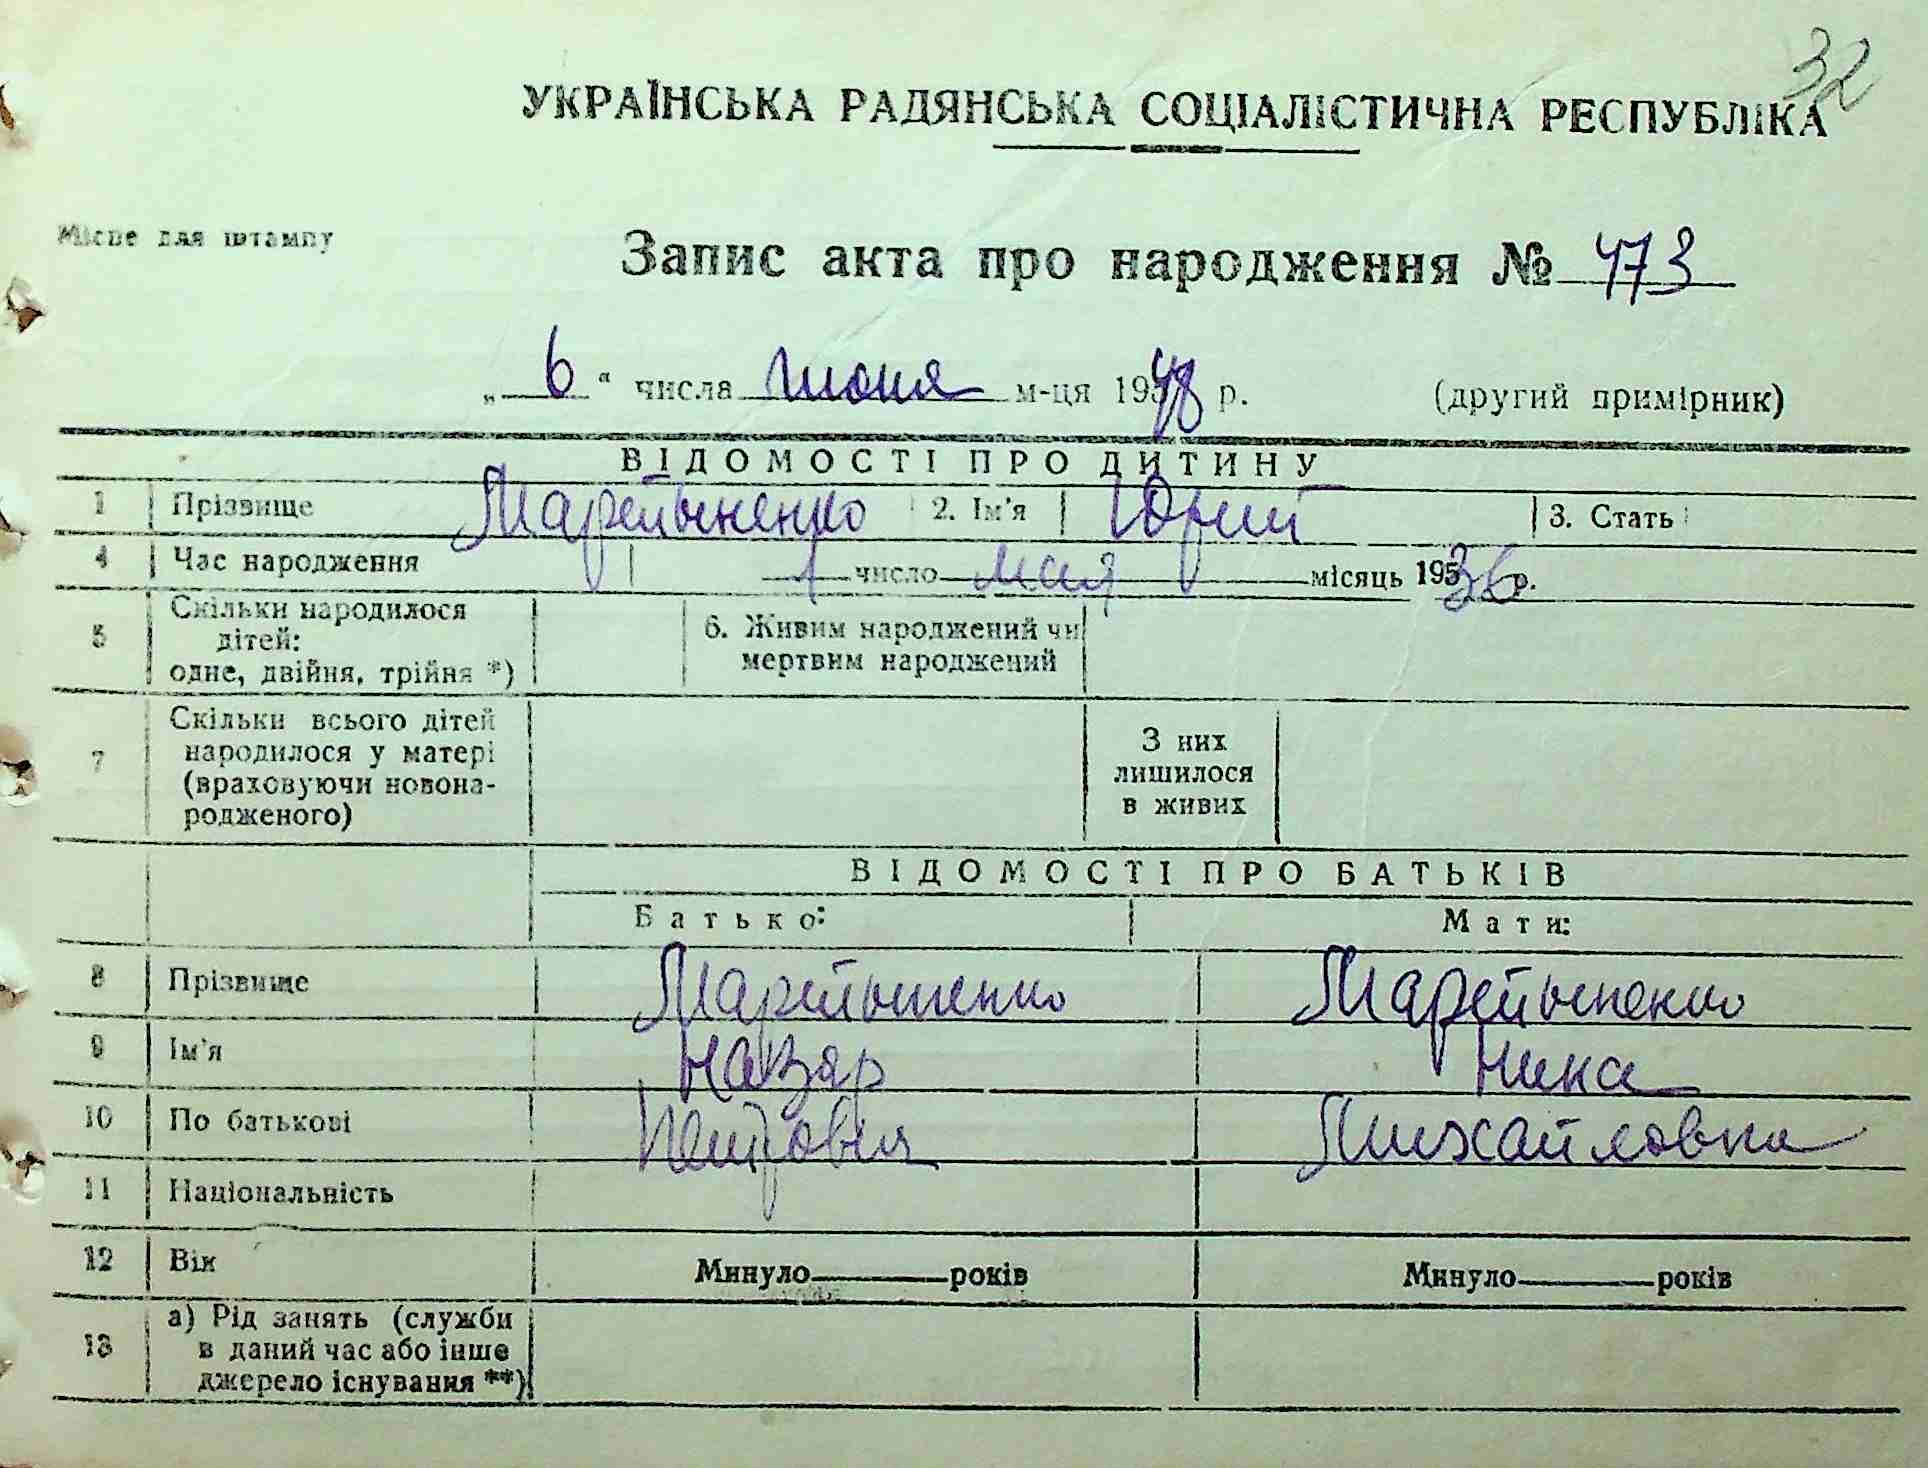 32
УКРАЇНСЬКА РАДЯНСЬКА СОЦІАЛІСТИЧНА РЕСПУБЛІКА
Місце для штампу
Запис акта про народження № 473
„ 6 “ числа июня м-ця 1948 р. (другий примірник)
ВІДОМОСТІ ПРО ДИТИНУ
1 Прізвище 2. Ім'я Юрий 3. Стать
4 Час народження 1 число мая місяць 1936 р.
5 Скільки народилося дітей: одне, двійня, трійня *) 6. Живим народжений чи мертвим народжений
7 Скільки всього дітей народилося у матері (враховуючи новонародженого) З них лишилося в живих
ВІДОМОСТІ ПРО БАТЬКІВ
Батько: Мати:
8 Прізвище
9 Ім'я Назар Нина
10 По батькові Петрович Михайловна
11 Національність
12 Вік Минуло років Минуло років
13 а) Рід занять (служби в даний час або інше джерело існування **)